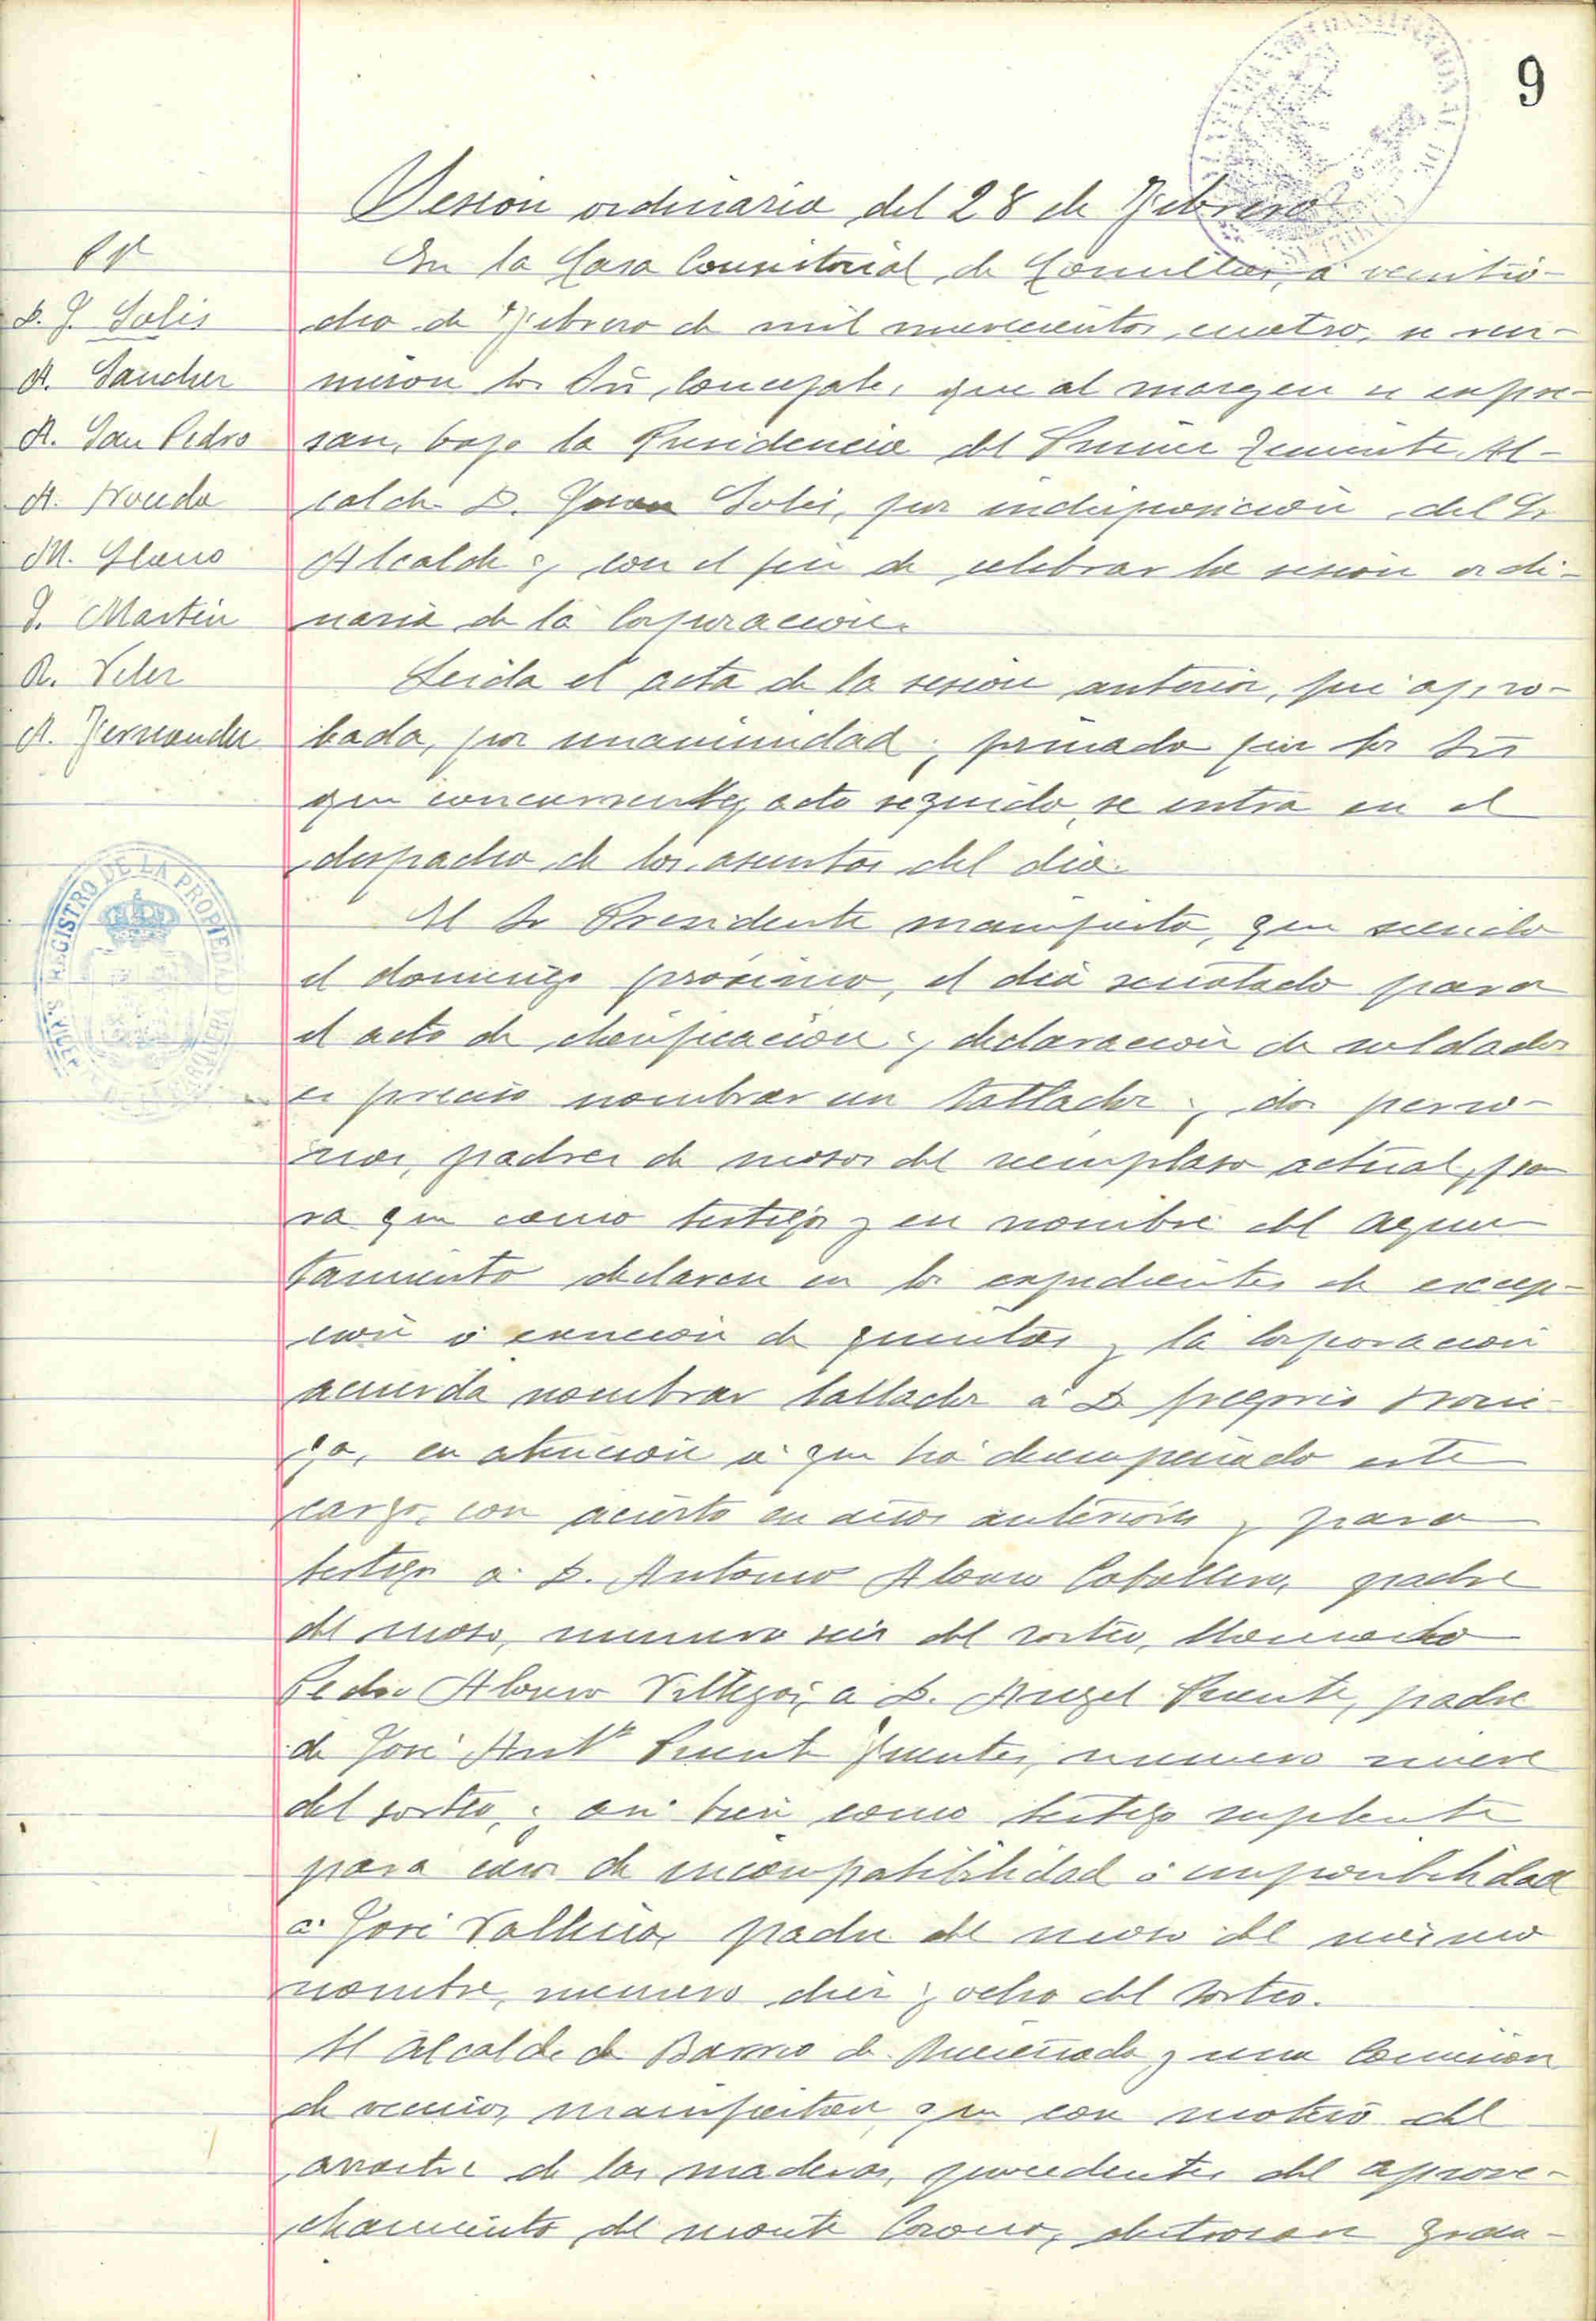 9
Sesion ordinaria del 28 de Febrero
En la Casa Consistorial de Comillas, a veintio-
cho de Febrero de mil novecientos cuatro, se reu-
nieron los Sres Concejales que al margen se expre-
san, bajo la Presidencia del Primer Teniente Al-
calde D. Solis, por indisposicion del Sr
Alcalde y con el fin de celebrar la sesion ordi-
naria de la Corporacion.
Leida el acta de la sesion anterior, fué apro-
bada, por unanimidad y firmada por los Sres
que concurrentes, acto seguido, se entra en el
despacho de los asuntos del dia.
El Sr Presidente manifestó, que siendo
el domingo próximo, el dia señalado para
el acto de clasificacion y declaracion de soldados
es preciso nombrar un tallador y dos perso-
nas, padres de mozos del reemplazo actual, pa
ra que como testigos y en nombre del Ayun
tamiento declaren en los expedientes de excep-
cion ó exencion de quintas y la Corporacion
acuerda nombrar tallador a D Gregorio
en atencion á que ha desempeñado este
cargo, con acierto en años anteriores y para
testigos a D. Antonio Alonso Caballero, padre
del mozo, numero seis del sorteo, llamado
Pedro Alonso Villegas, a D. Angel Puente, padre
de José Antº Puente Fuentes, numero nueve
del sorteo, y asi bien como testigo suplente
para caso de incompatibilidad ó imposibilidad
a José Vallina, padre del mozo del mismo
nombre, numero diez y ocho del sorteo.
El Alcalde de Barrio de Ruiseñada y una Comision
de vecinos, manifiestan que con motivo del
arrastre de las maderas, procedentes del aprove-
chamiento del monte Corona, gran-
D. J. Solis
A. Sanchez
A. San Pedro
M. Llano
J. Martin
R. Velez
A. Fernandez
REGISTRO DE LA PROPIEDAD
S. VICENTE DE LA BARQUERA